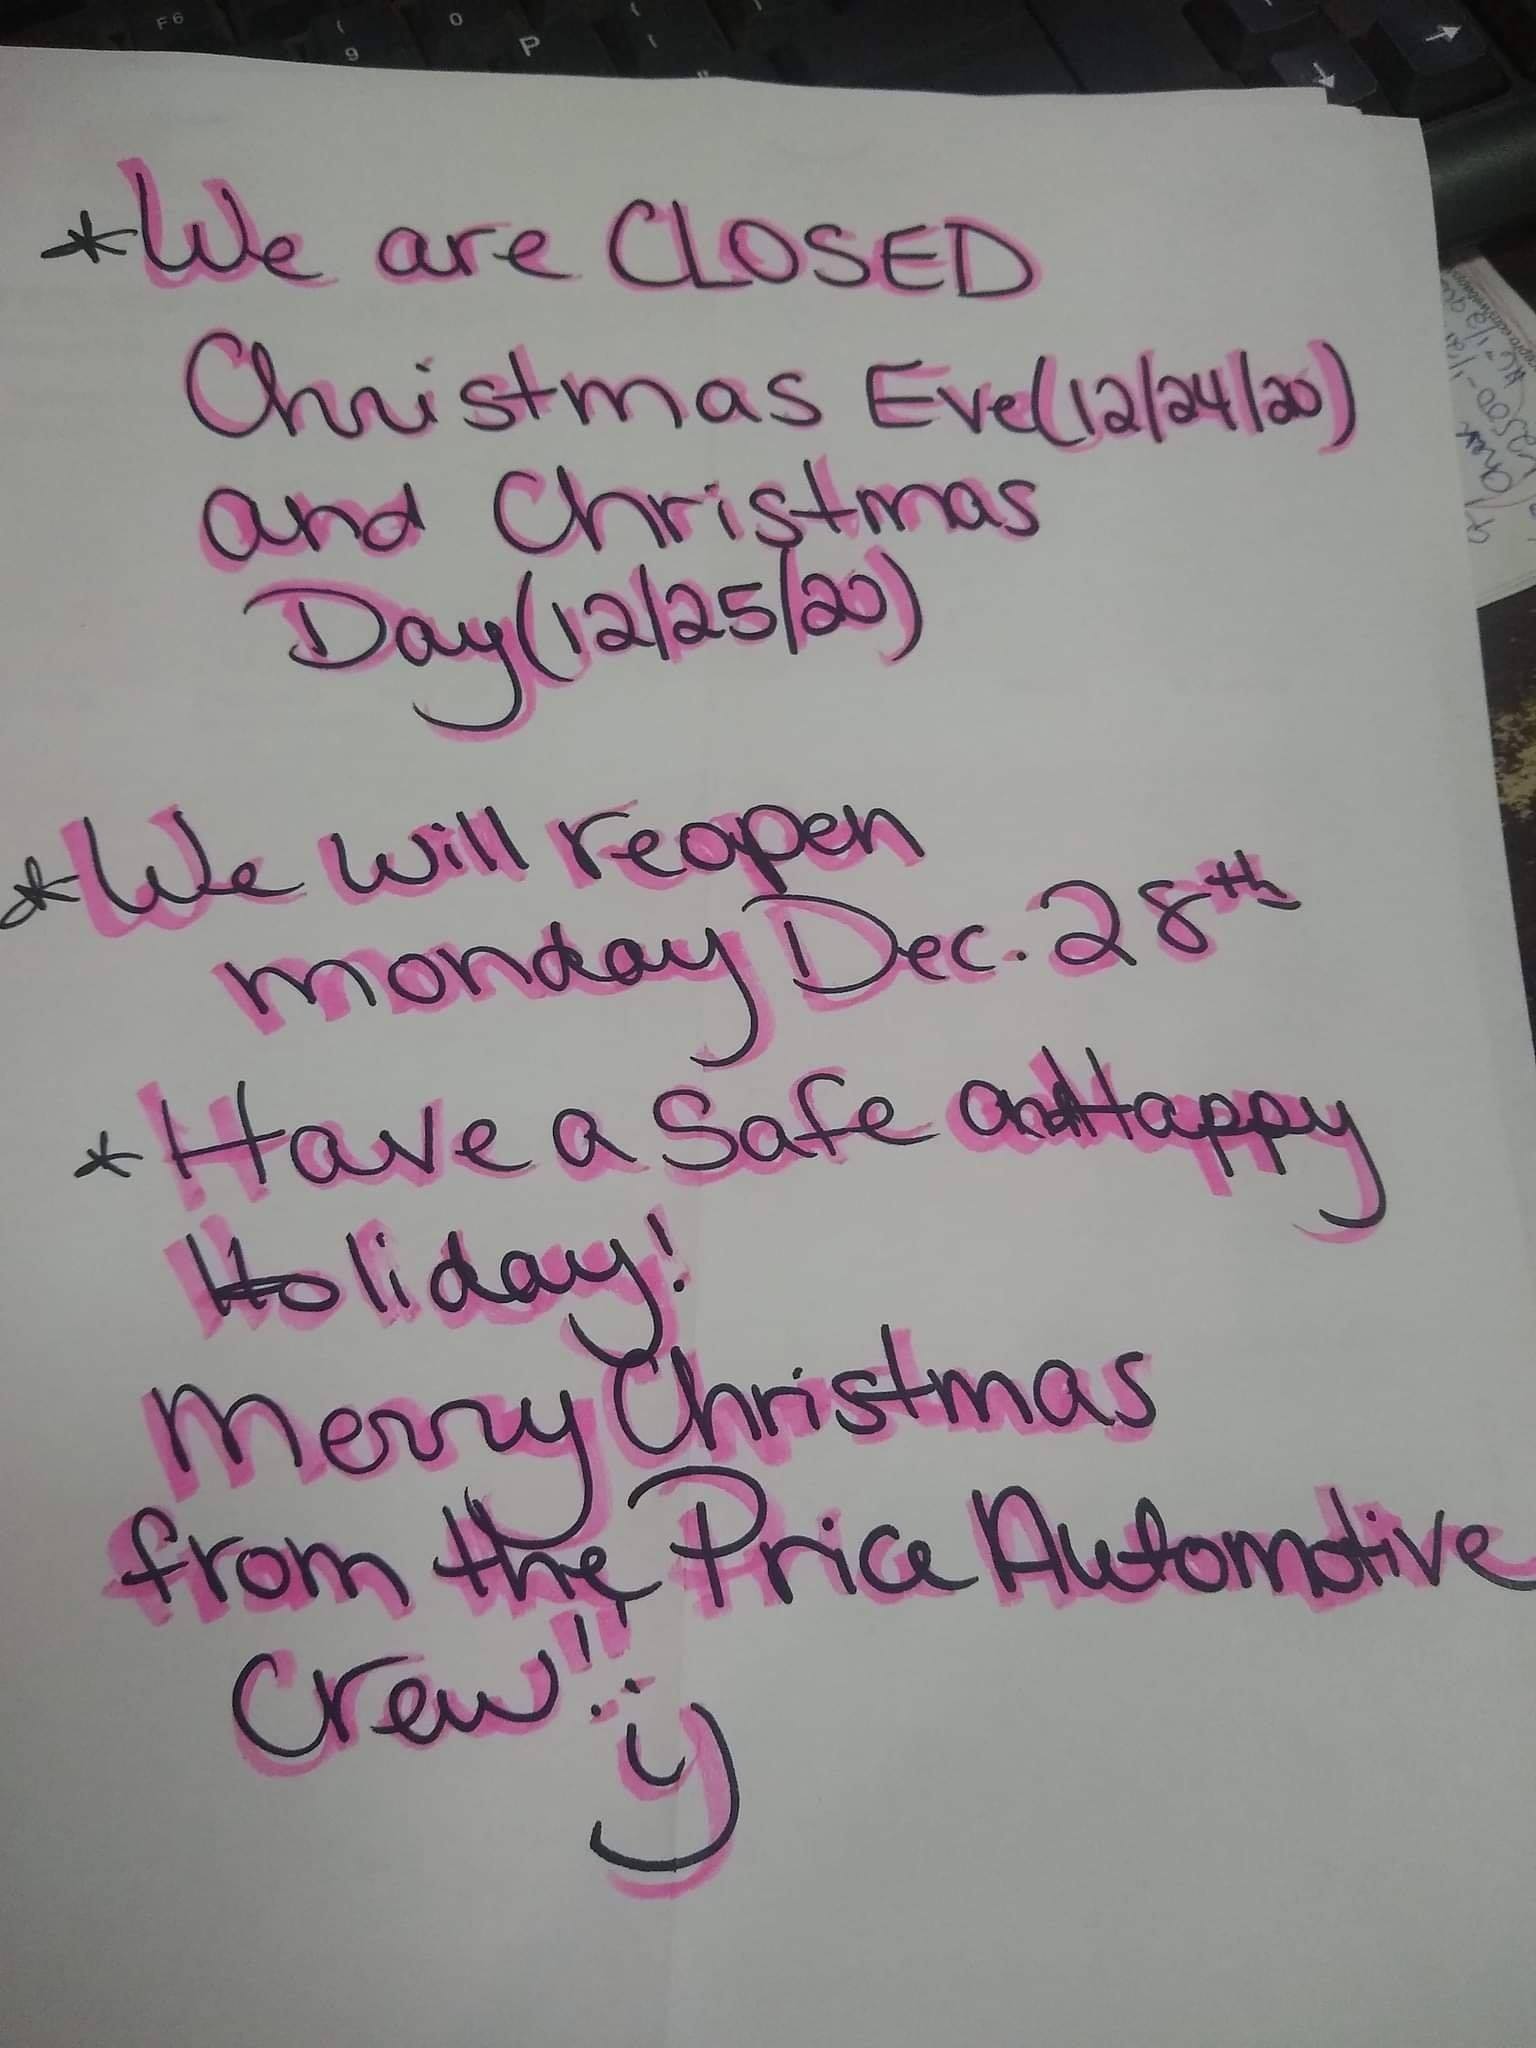 F6
9
O
P
* We are CLOSED
Christmas Eve (12/24/20)
and Christmas
Day (12/25/20)
* We will reopen
monday Dec. 28th
* Have a Safe and Happy
Holiday!
Merry Christmas
from the Price Automotive
Crew!! :)